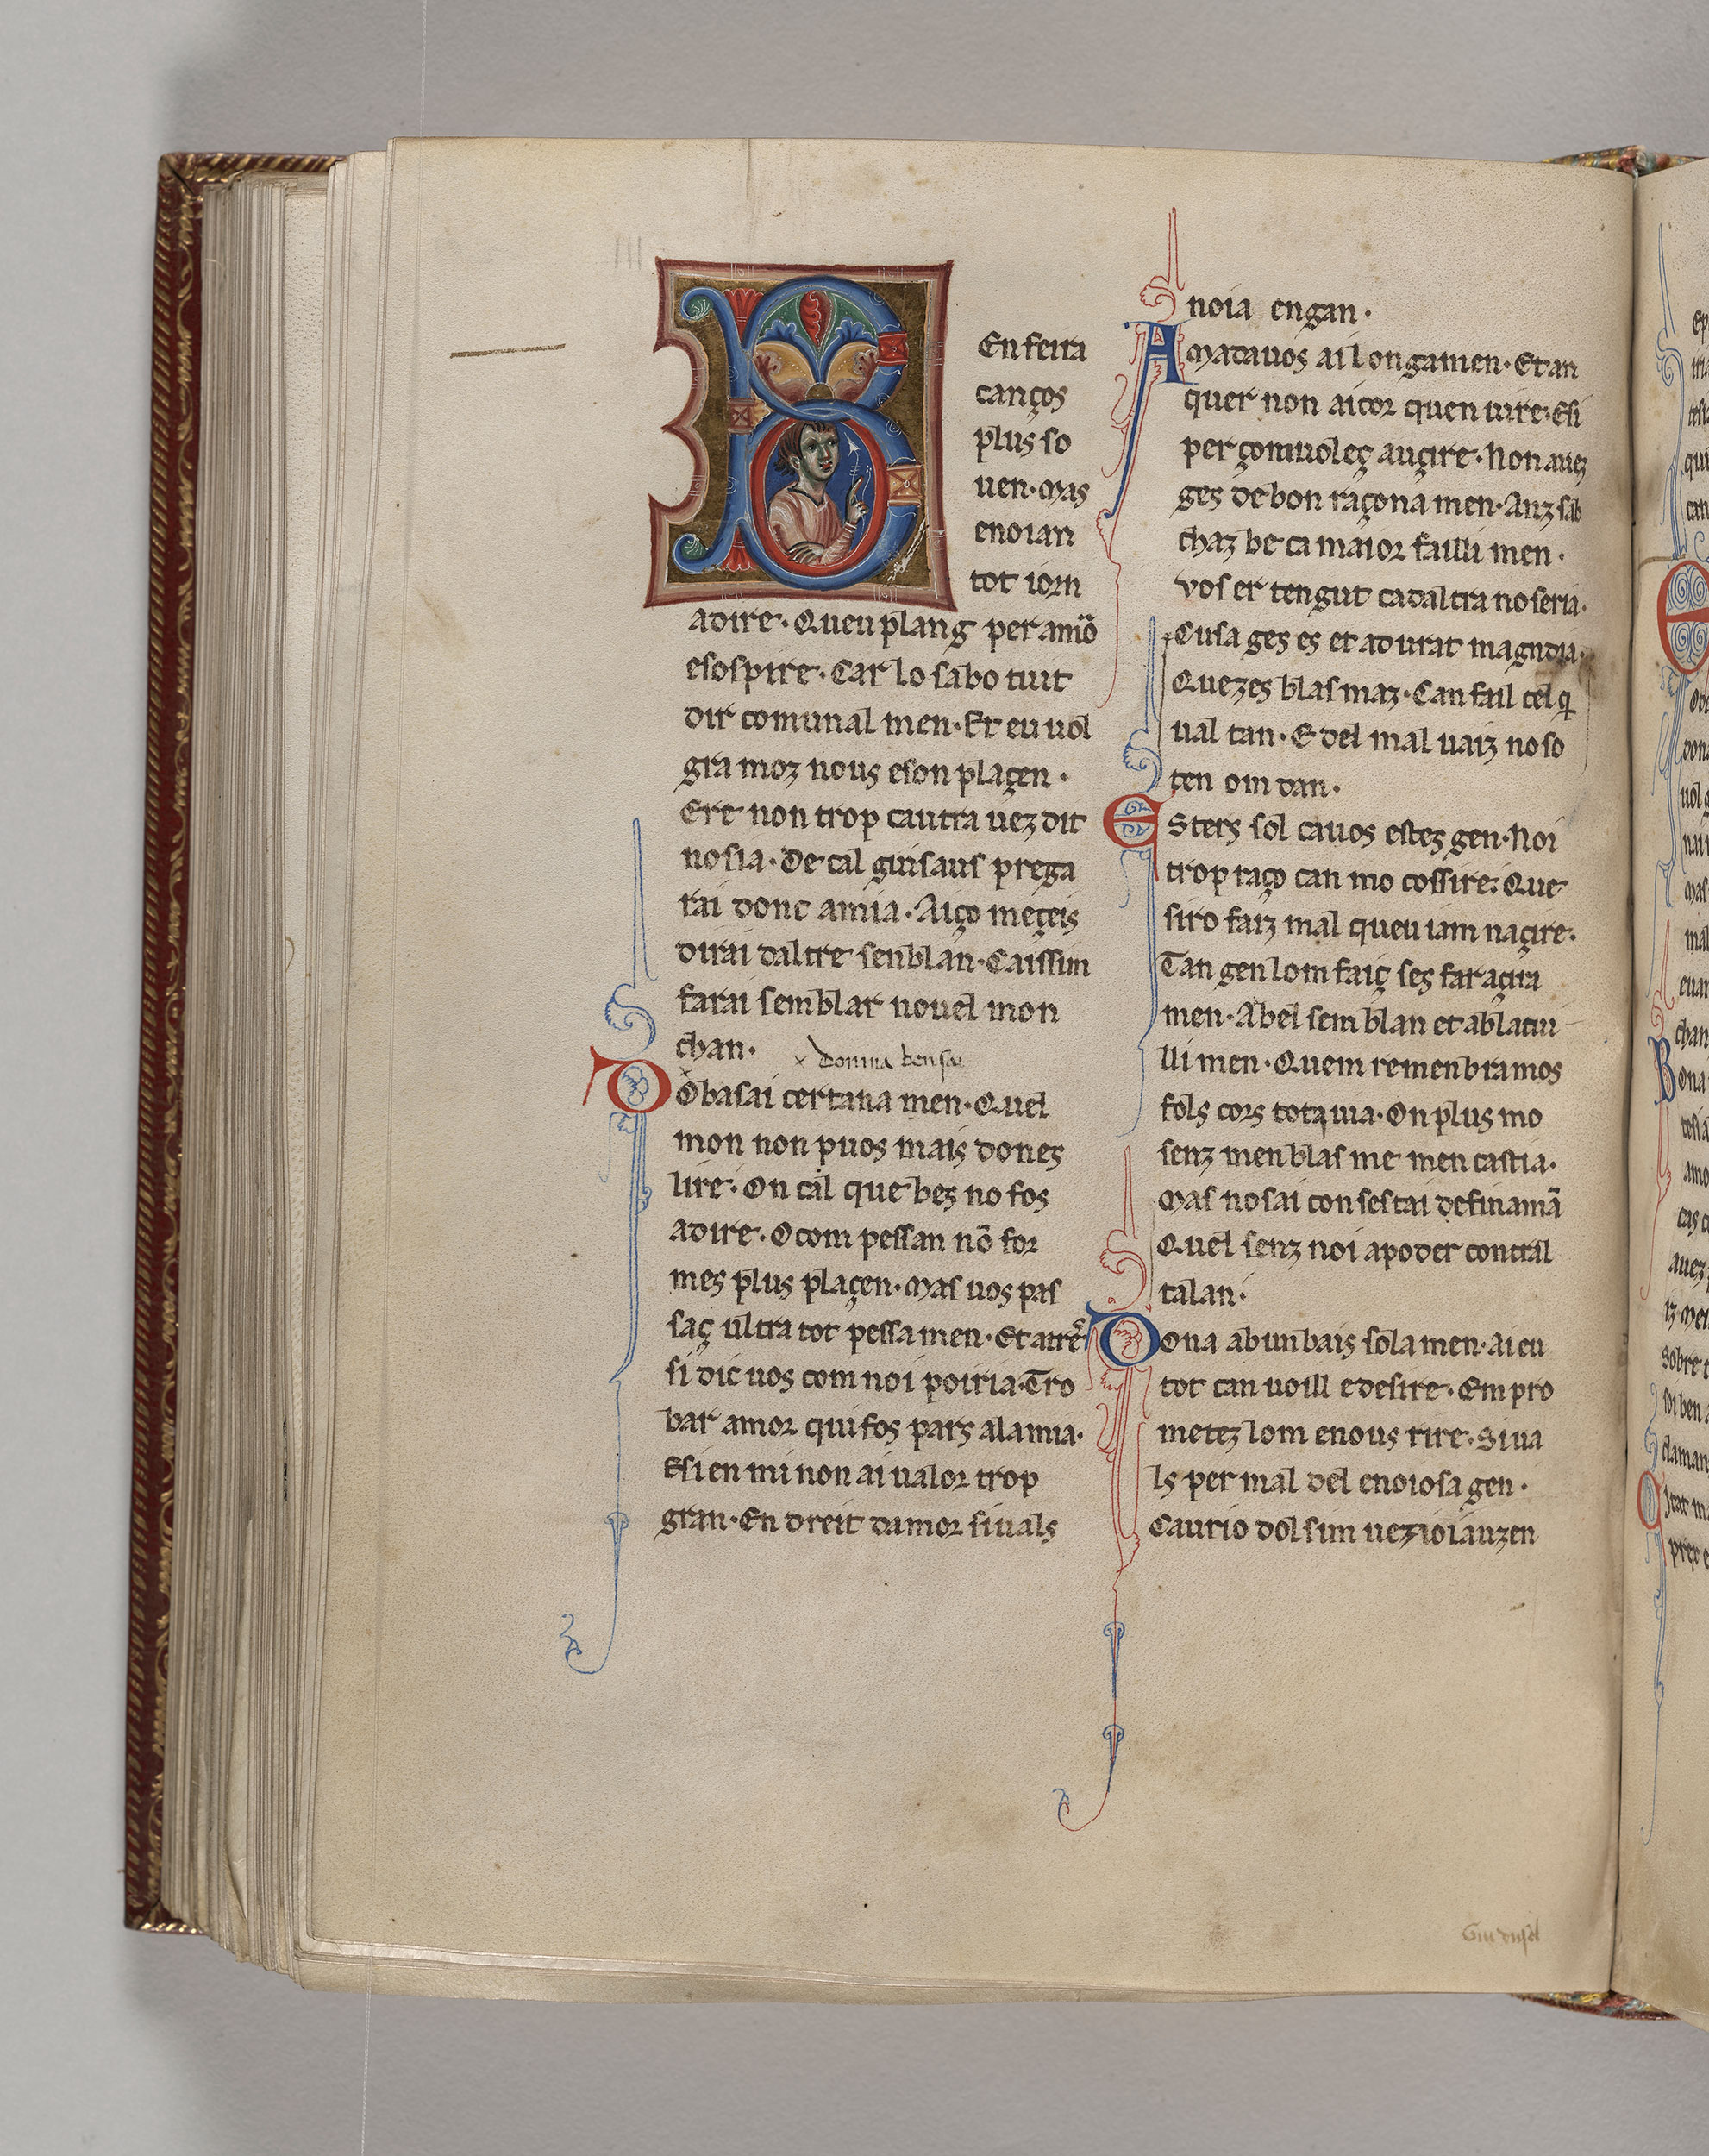 B
En feira
canços
plus so
uen· mas
enoian
tot iorn
adire· Queu plang per amō
esospire· Car lo sabo tuit
dir comunal men· Et eu uol
gra moz nous eson plaçen·
Ere non trop cautra uez dit
nosia· De cal guisaus prega
rai donc amia· Aiço meçeis
dirai daltre senblan· Caissim
farai semblar nouel mon
chan·
Domna ben sai
D Obasai certana men· Quel
mon non puos mais dones
lire· On cal que bes no fos
adire· O com pessan nō for
mes plus plaçen· Mas uos pas
saç ultra tot pessa men· Et atre
si dic uos com noi poiria· Tro
bar amor qui fos pars ala mia·
Esi en mi non ai ualor trop
gran· En dreit damor siuals
noia engan·
A Madauos ai longamen· Et an
quer non ai cor quen uire· Esi
per çomuoleç auçire· Non auez
ges de bon raçona men· Anz sab
chaz be ca maior failli men·
Vos er tengut cadaltra no seria·
Cusa ges es et adurat magndia·
Quezes blas maz· Can fail cel q
ual tan· E del mal uaiz no so
ten om dan·
E Sters sol cauos estes gen· Noi
trop raço can mo cossire· Que
siro faiz mal queu iam naçire·
Tan gen lom faiç ses far açira
men· Abel semblan et ablacui
lli men· Quem remenbra mos
fols cors tota uia· On plus mo
senz men blas me men castia·
Mas no sai con sestai de finamā
Quel senz noi a poder contral
talan·
D ona abun bais sola men· Ai eu
tot can uoill e desire· Em pro
metez lom enous tire· Si ua
ls per mal del enoiosa gen·
Caurio dol sim uezioiauzen